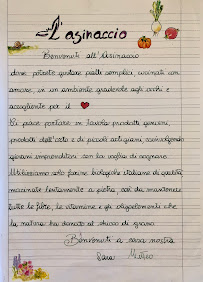 L'asinaccio
Benvenuti all'Asinaccio
dove potrete gustare piatti semplici, cucinati con
amore, in un ambiente gradevole agli occhi e
accogliente per il
Ci piace portare in tavola prodotti genuini,
prodotti dell'orto e di piccoli artigiani, coinvolgendo
giovani imprenditori con la voglia di sognare.
Utilizziamo solo farine biologiche italiane di qualità,
macinate lentamente a pietra, così da mantenere
tutte le fibre, le vitamine e gli oligoelementi che
la natura ha donato al chicco di grano.
Benvenuti a casa nostra
Sara Matteo